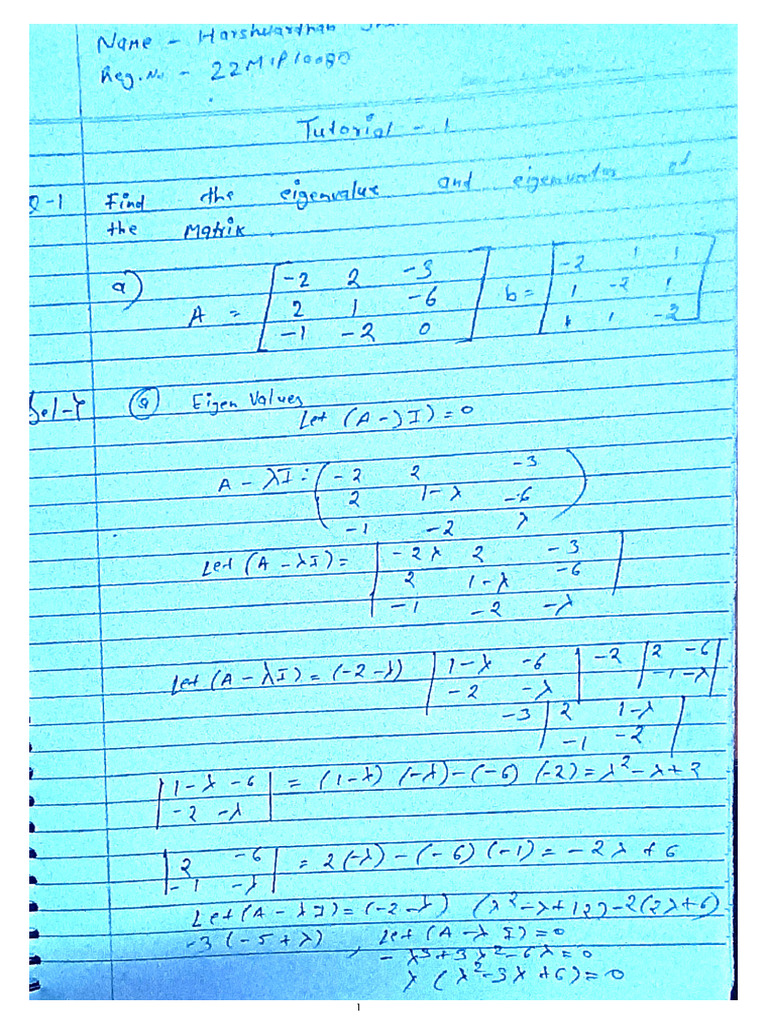 Name - Harshvardhan
Reg. No - 22MIP10080
Tutorial - 1
Q-1 Find the eigenvalue and eigenvector of
the Matrix
a) A = [ -2 2 -3 ] b = [ -2 1 1 ]
[ 2 1 -6 ] [ 1 -2 1 ]
[ -1 -2 0 ] [ 1 1 -2 ]
Sol-1 (a) Eigen Values
Let (A-λI)=0
A - λI : ( -2 2 -3 )
( 2 1-λ -6 )
( -1 -2 λ )
Let (A - λI) = | -2λ 2 -3 |
| 2 1-λ -6 |
| -1 -2 -λ |
Let (A - λI) = (-2-λ) | 1-λ -6 | -2 | 2 -6 |
| -2 -λ | | -1 -λ |
-3 | 2 1-λ |
| -1 -2 |
| 1-λ -6 | = (1-λ) (-λ) - (-6) (-2) = λ² - λ + 2
| -2 -λ |
| 2 -6 | = 2(-λ) - (-6) (-1) = -2λ + 6
| -1 -λ |
Let (A - λI) = (-2-λ) (λ² - λ + 12) - 2(2λ+6)
-3 (-5 + λ) , Let (A - λ I) = 0
- λ³ + 3λ² - 6λ = 0
λ (λ² - 3λ + 6) = 0
1